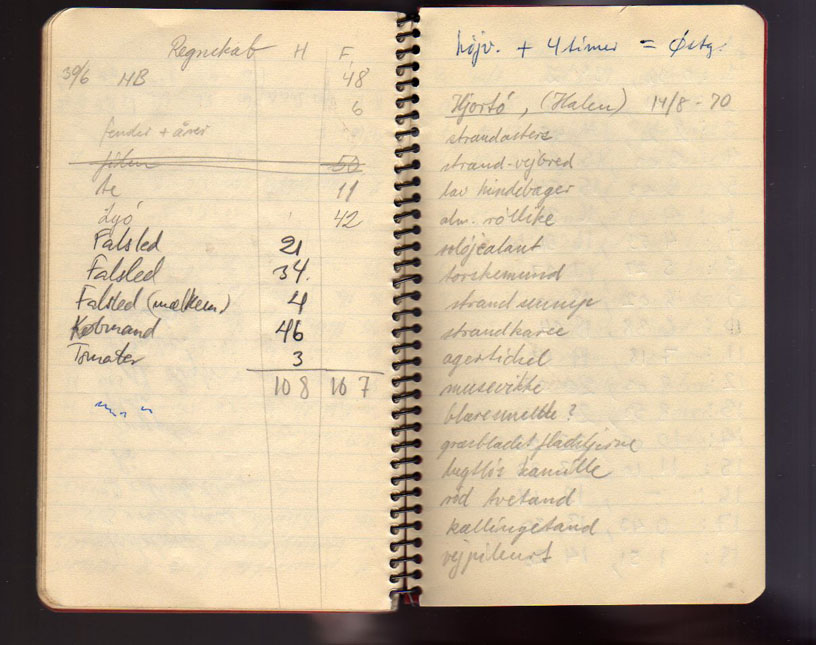 Regnskab H F
30/6 HB 48
6
fender + årer
50
te 11
Lyø 42
Falsled 21
Falsled 34.
Falsled (mælkem) 4
Købmand 46
Tomater 3
108 107
højv. + 4 timer = Østg.
Hjortø, (Halen) 14/8 - 70
strandasters
strand-vejbred
lav hindebæger
alm. røllike
soløjealant
torskemund
strandsennep
strandkarse
agertidsel
musevikke
blæresmelde?
græsbladet fladstjerne
lugtløs kamille
rød tvetand
kællingetand
vejpileurt